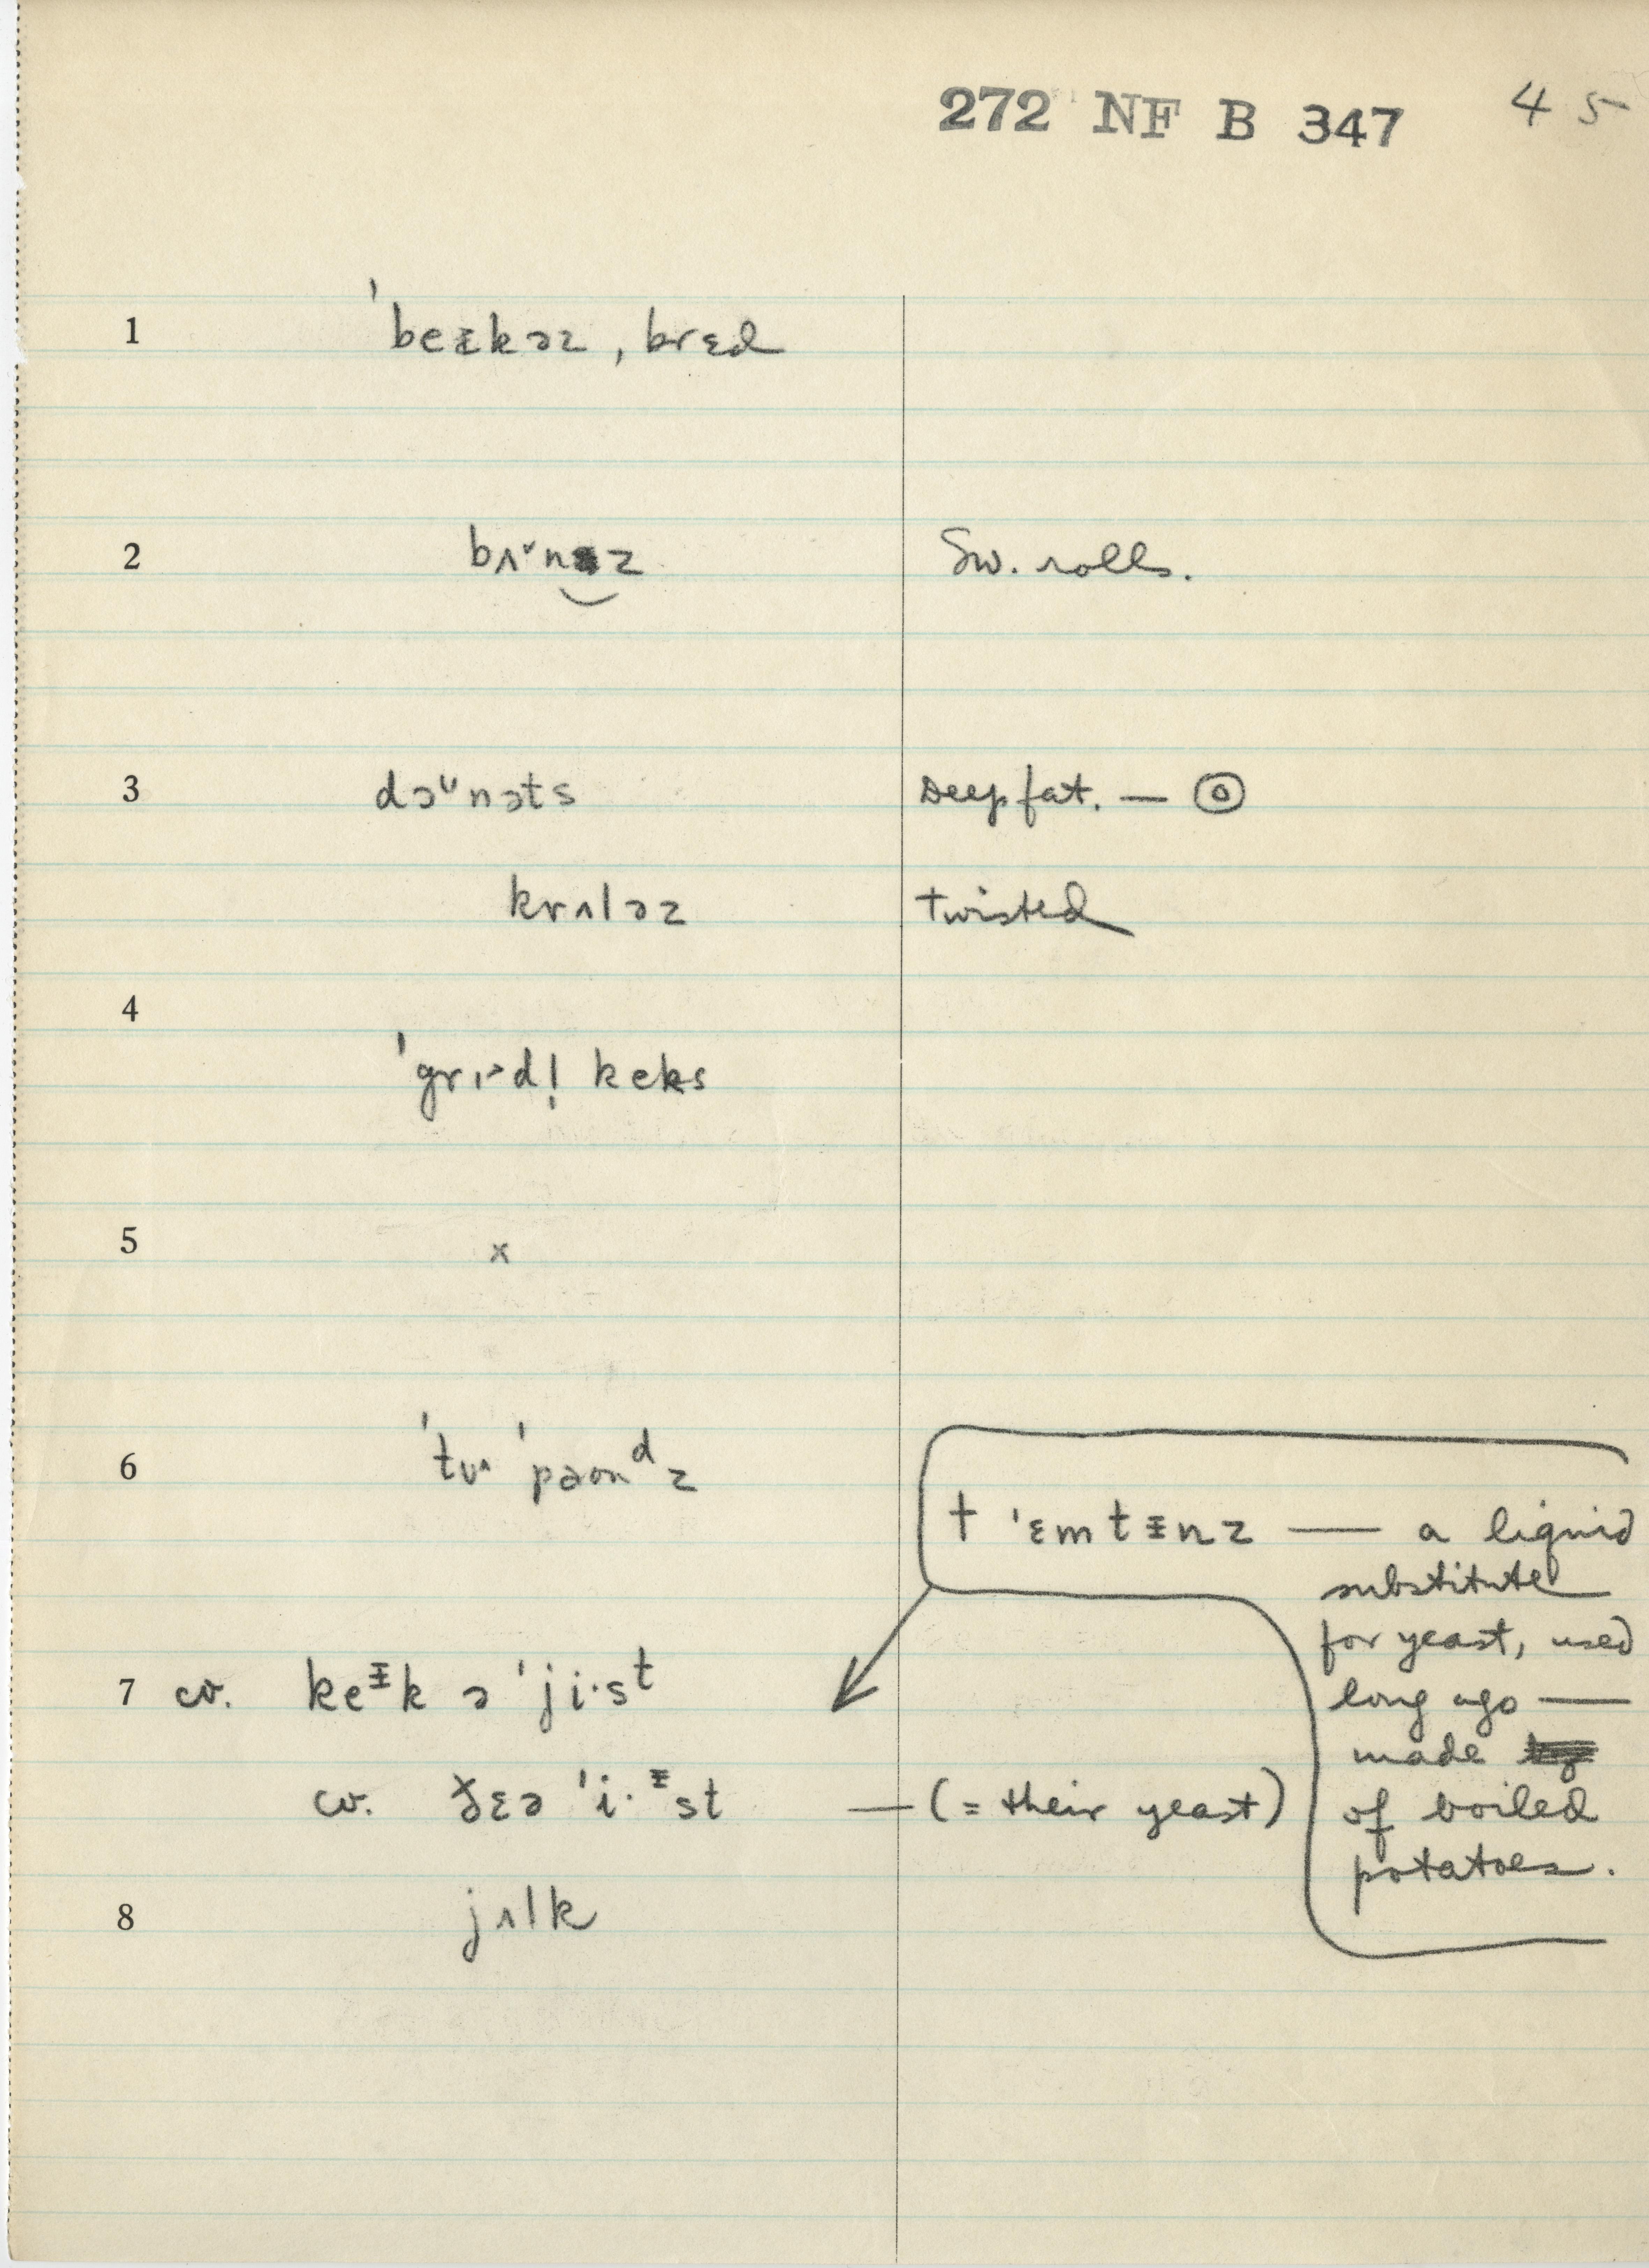 272 NF B 347 45
1 ˈbeᵻkəz, brɛd
2 bʌ˅nz Sw. rolls.
3 dɔᶷnəts Deep fat. —
krʌləz twisted
4
ˈgrɪ˃dl̩ keks
5 x
6 ˈtu˄ ˈpaʊnᵈz
† ˈɛmtᵻnz — a liquid
substitute
for yeast, used
long ago —
made
of boiled
potatoes.
7 cv. keᵻk ə ˈji·sᵗ
cv. ðɛə ˈi·ᵻst — (= their yeast)
8 jʌlk